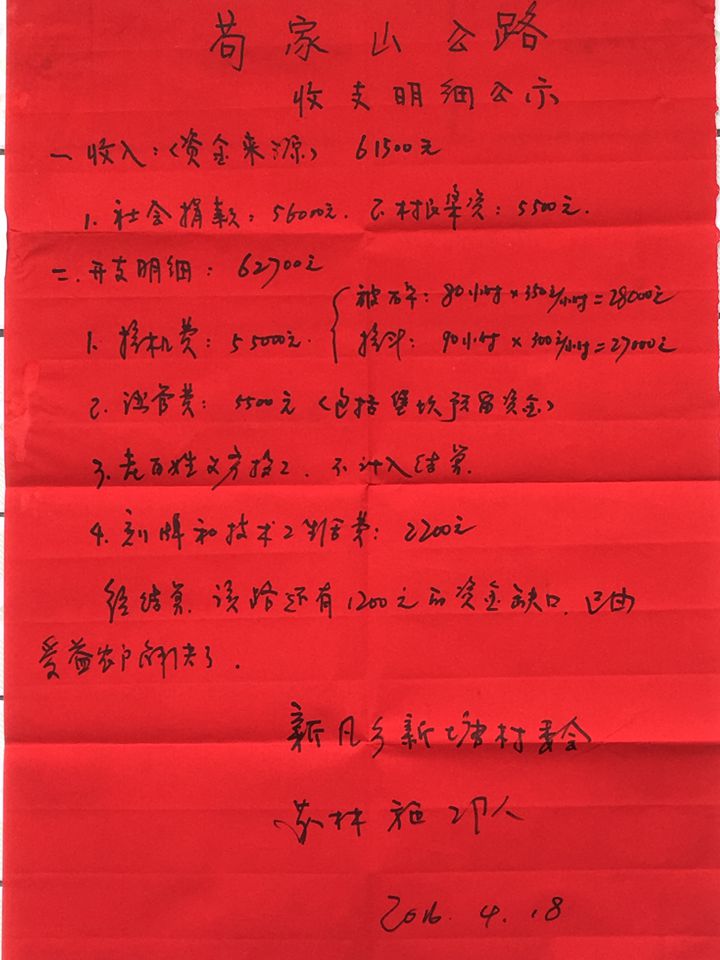 苟家山公路
收支明细公示
一、收入：(资金来源) 61500元
1、社会捐款：56000元. 2、村民集资：5500元.
二、开支明细：62700元
破石车：80小时×350元/小时=28000元
1、挖机费：55000元.
挖斗：90小时×300元/小时=27000元
2、涵管费：5500元 (包括堡坎预留资金)
3、老百姓义务投工. 不计入结算.
4、刻牌和技术工生活费：2200元
经结算. 该路还有1200元的资金缺口. 已由
受益农户解决了.
新凡乡新塘村委会
2016.4.18